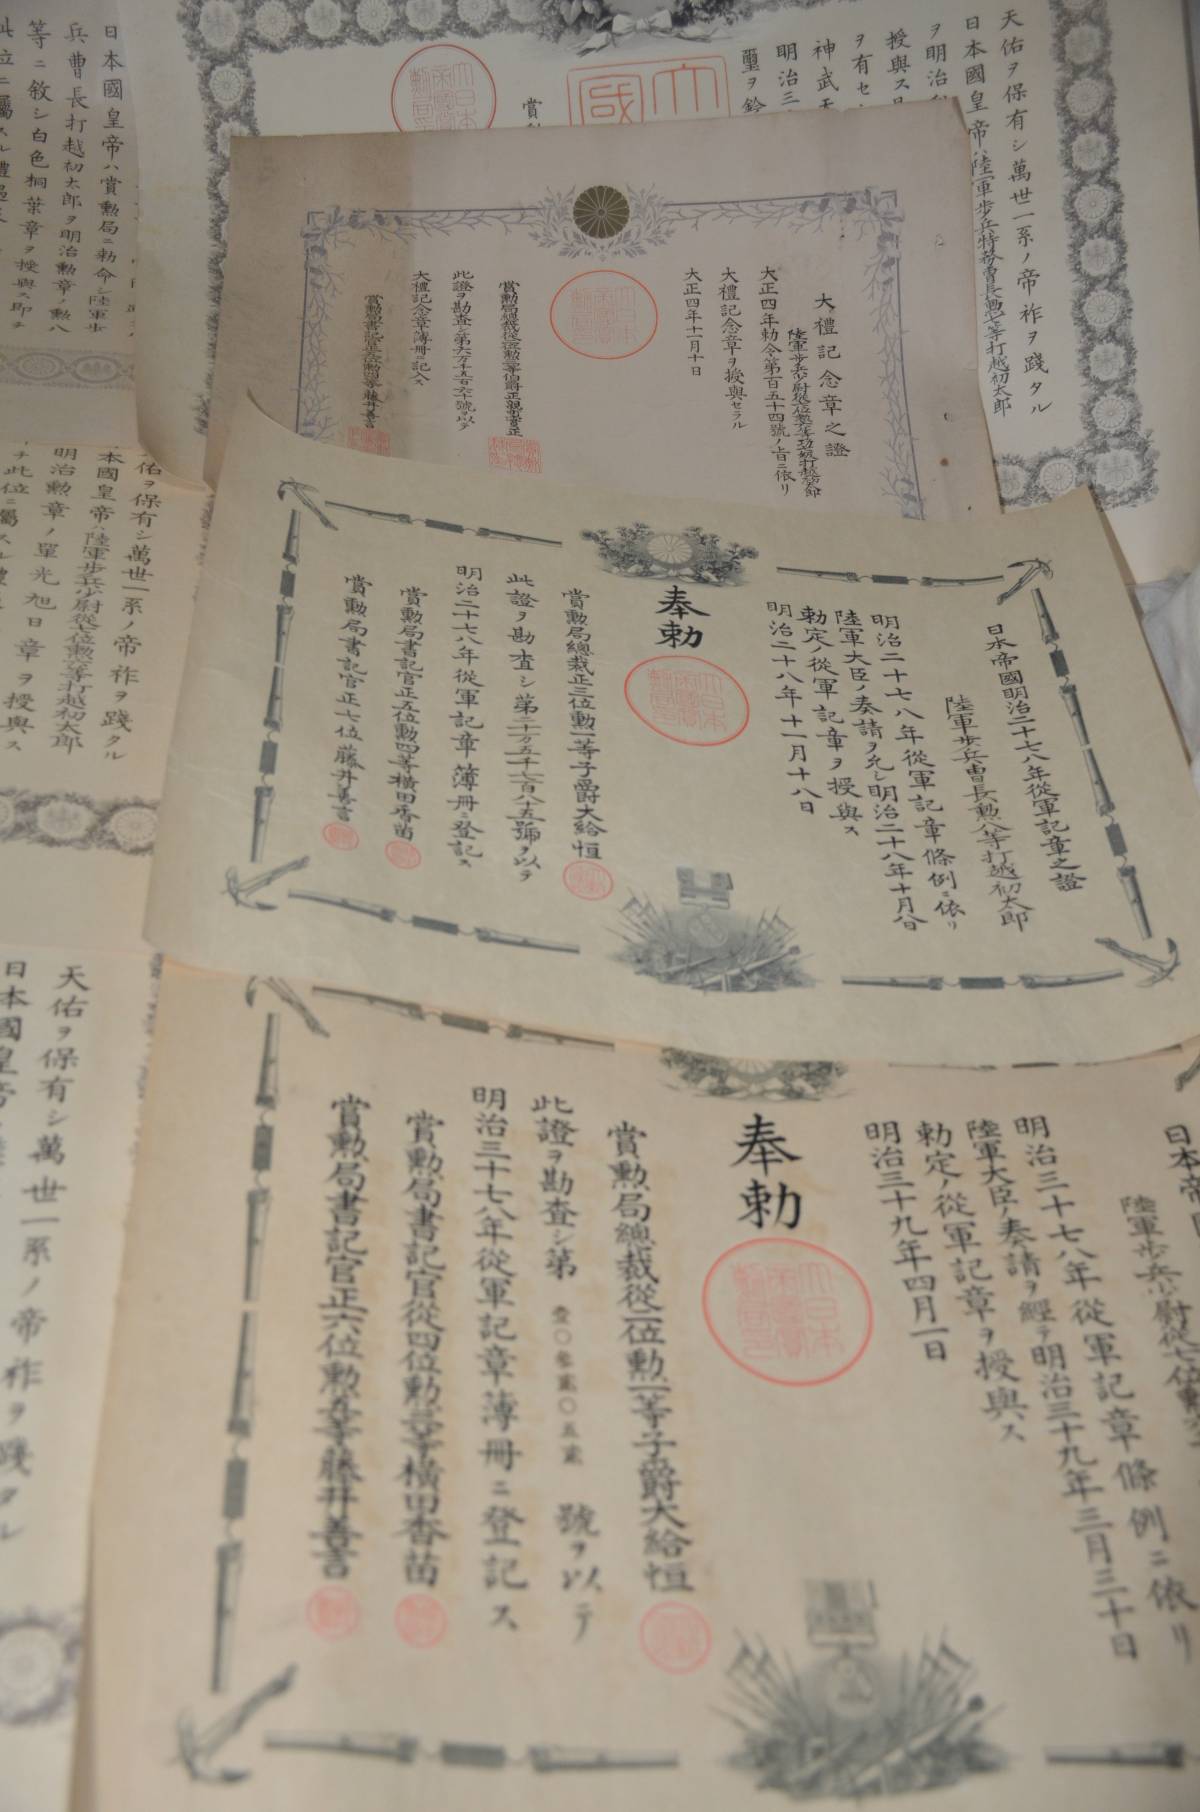 天佑ヲ保有シ萬世一系ノ帝祚ヲ踐タル
日本國皇帝ハ陸軍歩兵特務曹長勲七等打越初太郎
ヲ明治
授與ス
ヲ有セ
神武天
明治三
璽ヲ鈐
大日本帝國賞勲局印
日本國皇帝ハ賞勲局ニ勅命シ陸軍歩
兵曹長打越初太郎ヲ明治勲章ノ勲八
等ニ敘シ白色桐葉章ヲ授與ス即チ
此位ニ屬スル禮遇
大禮記念章之證
大正四年勅令第百五十四號ノ旨ニ依リ
大禮記念章ヲ授與セラル
大正四年十一月十日
大日本帝國賞勲局印
賞勲局總裁從二位勲一等伯爵正親町實正
大禮記念章簿冊ニ記入ス
佑ヲ保有シ萬世一系ノ帝祚ヲ踐タル
本國皇帝ハ陸軍歩兵少尉從七位勲七等打越初太郎
明治勲章ノ單光旭日章ヲ授與ス
チ此位ニ屬スル禮
日本帝國明治二十七八年從軍記章之證
陸軍歩兵曹長勲八等打越初太郎
明治二十七八年從軍記章條例ニ依リ
陸軍大臣ノ奏請ヲ允シ明治二十八年十月八日
勅定ノ從軍記章ヲ授與ス
明治二十八年十一月十八日
奉勅
大日本帝國賞勲局印
賞勲局總裁正三位勲一等子爵大給恒
此證ヲ勘査シ第二十万五千七百八十五號ヲ以テ
明治二十七八年從軍記章簿冊ニ登記ス
賞勲局書記官正五位勲四等横田香苗
賞勲局書記官正七位藤井善言
天佑ヲ保有シ萬世一系ノ帝祚ヲ踐タル
日本國皇帝
日本帝
陸軍歩兵少尉從七位勲
明治三十七八年從軍記章條例ニ依リ
陸軍大臣ノ奏請ヲ經テ明治三十九年三月三十日
勅定ノ從軍記章ヲ授與ス
明治三十九年四月一日
奉勅
大日本帝國賞勲局印
賞勲局總裁從二位勲一等子爵大給恒
此證ヲ勘査シ第壹〇參貳〇五貳號ヲ以テ
明治三十七八年從軍記章簿冊ニ登記ス
賞勲局書記官從四位勲三等横田香苗
賞勲局書記官正六位勲五等藤井善言